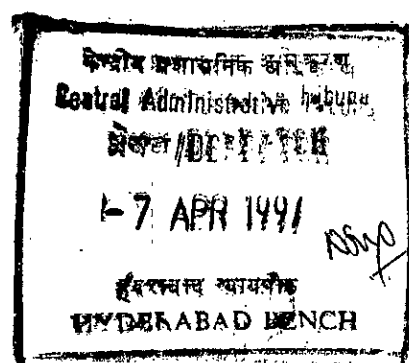 केन्द्रीय प्रशासनिक अधिकरण
Central Administrative Tribunal
प्रेषण/DESPATCH
7 APR 199
हैदराबाद न्यायपीठ
HYDERABAD BENCH